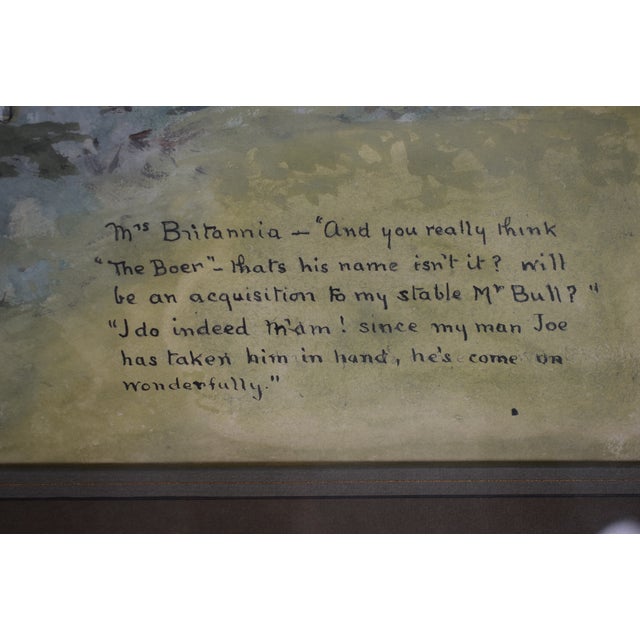 Mrs Britannia — "And you really think
"The Boer" - thats his name isn't it? will
be an acquisition to my stable Mr Bull? "
"I do indeed M'am! since my man Joe
has taken him in hand, he's come on
wonderfully."